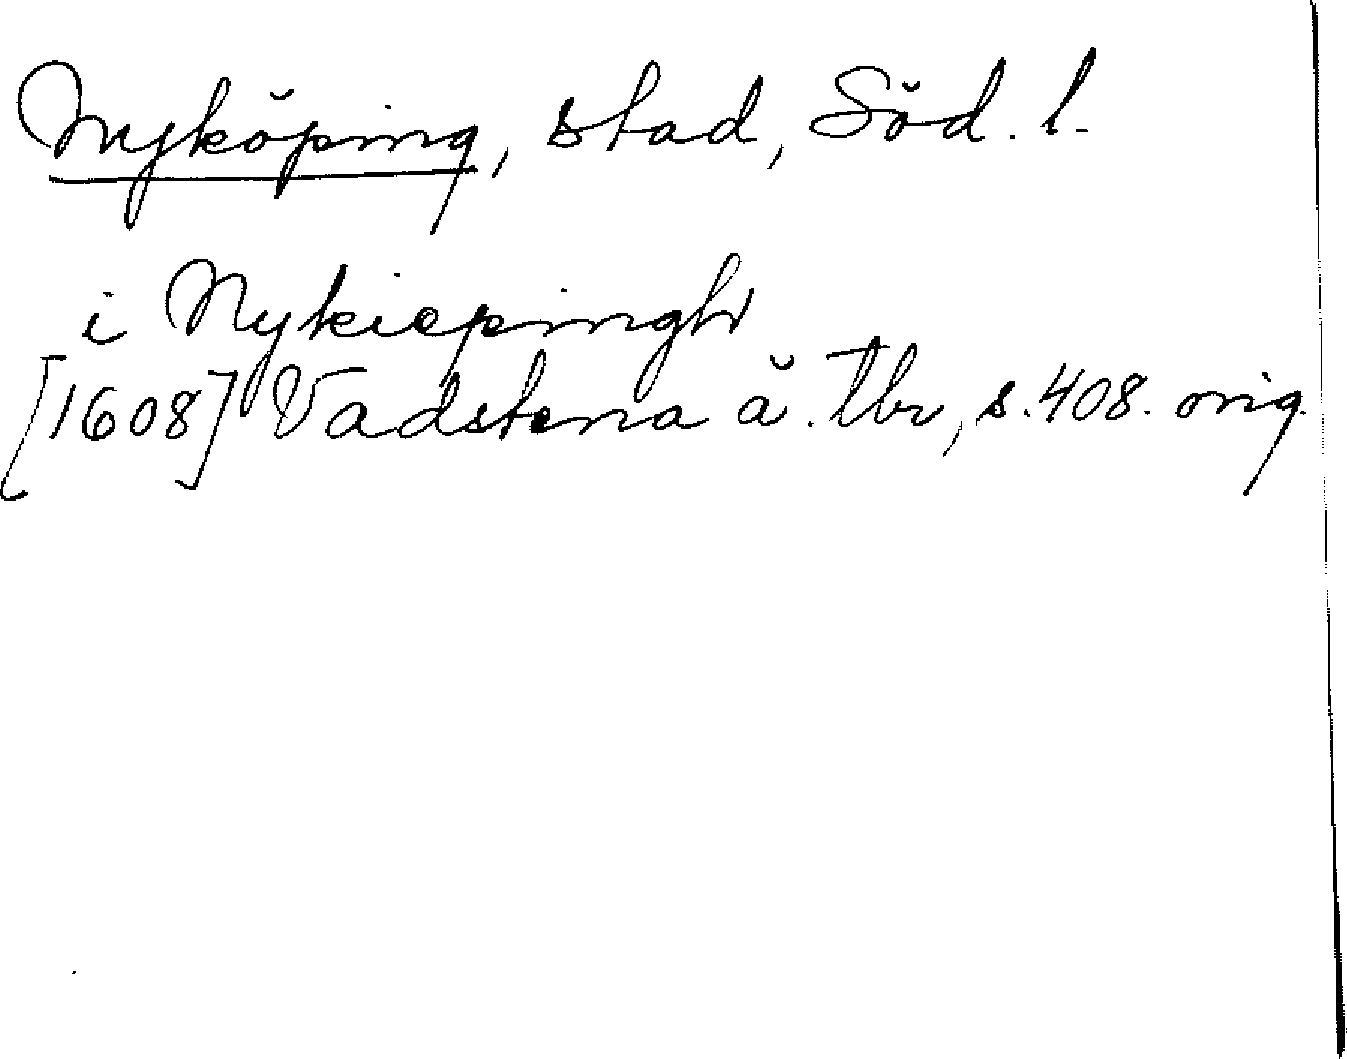 Nyköping, stad, Söd. l.
i Nykiepingh
[1608] Vadstena ä. tbr, s. 408. orig.